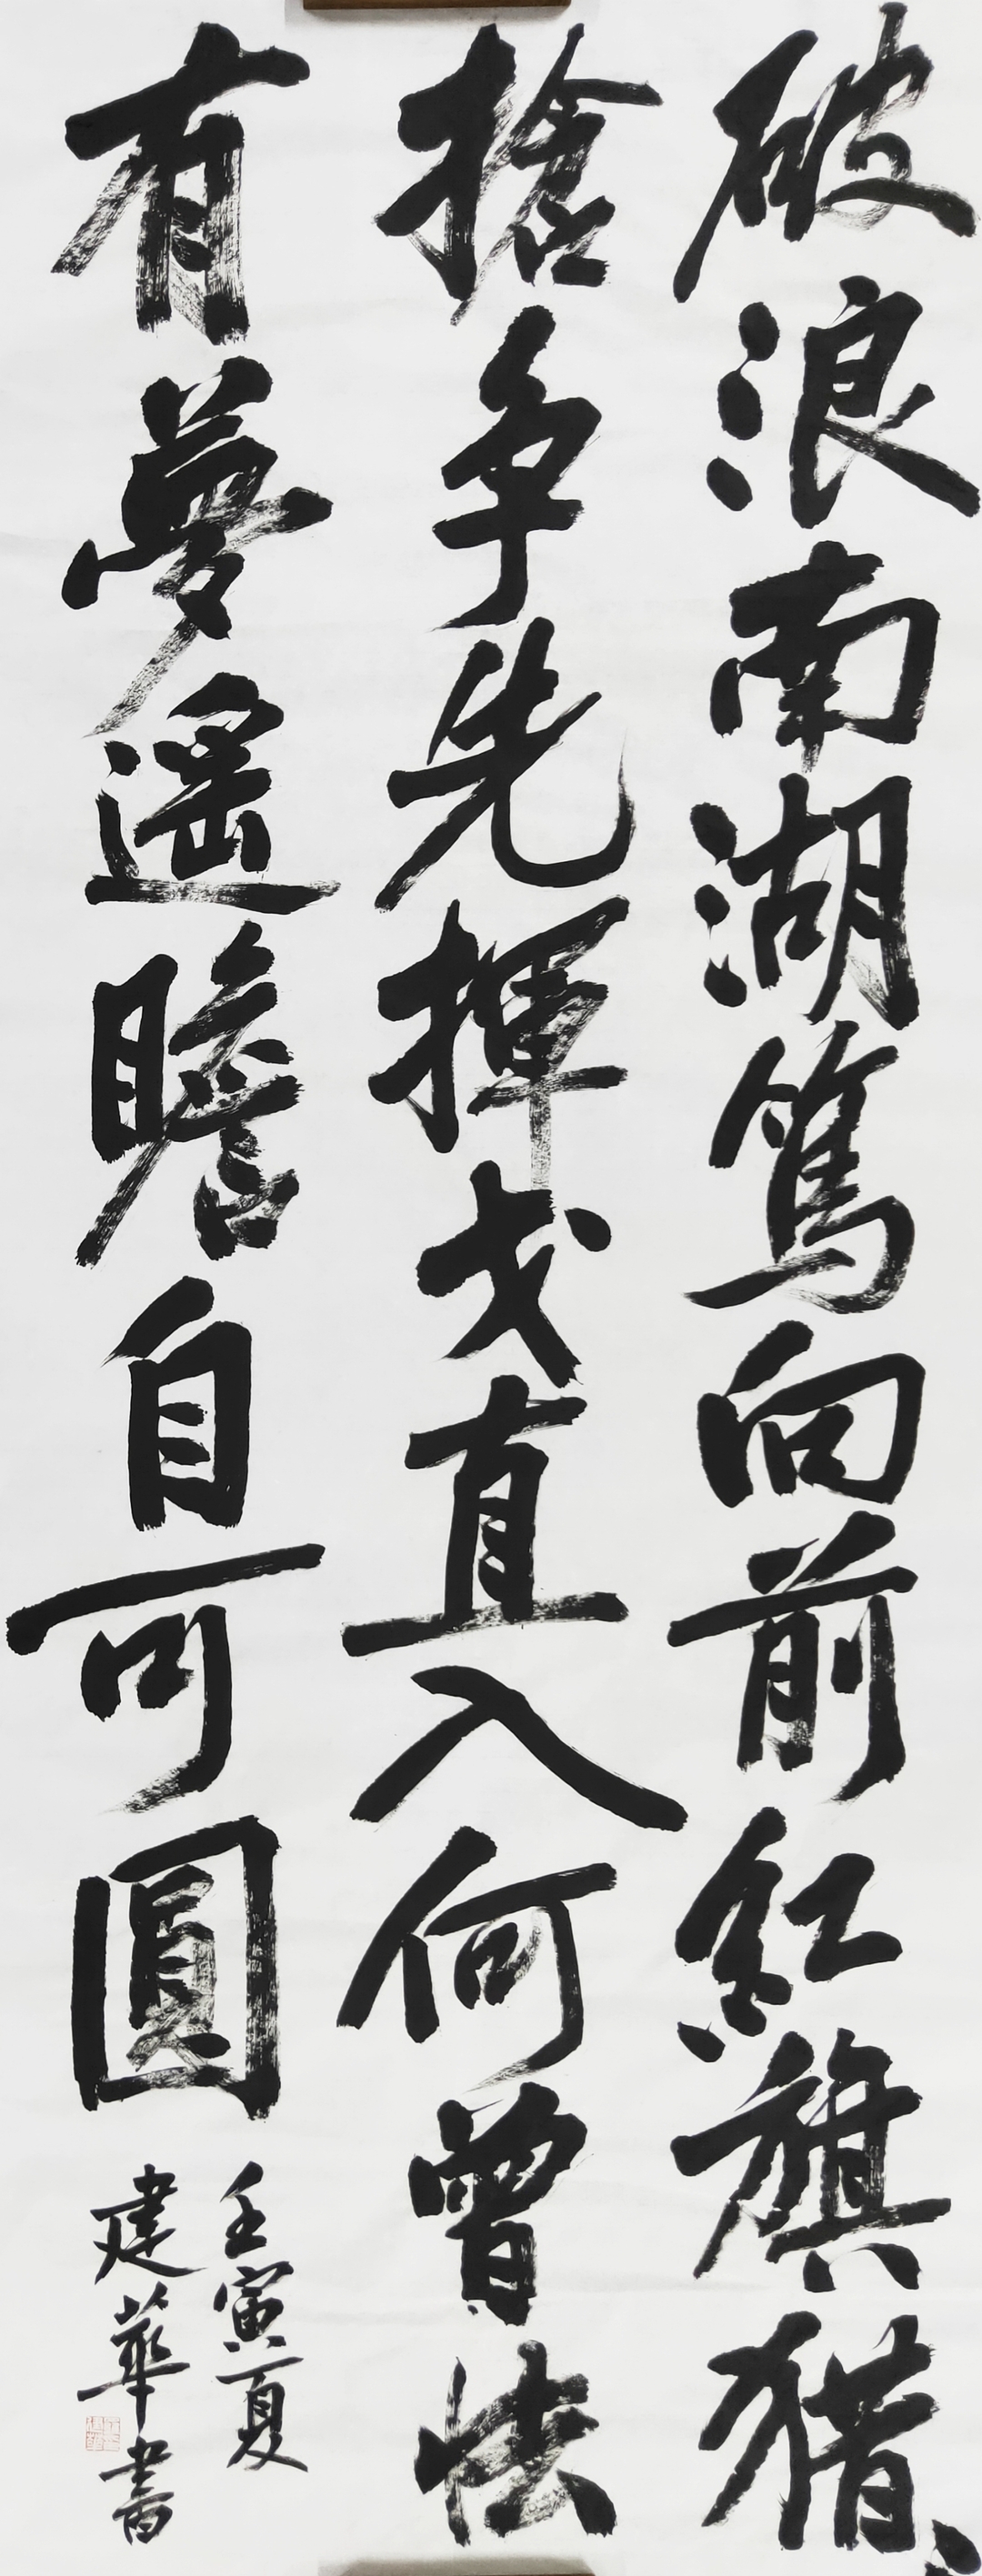 破浪南湖篤向前紅旗猎々
搶争先揮戈直入何曾怯
有夢遥瞻自可圓
壬寅夏
建華書